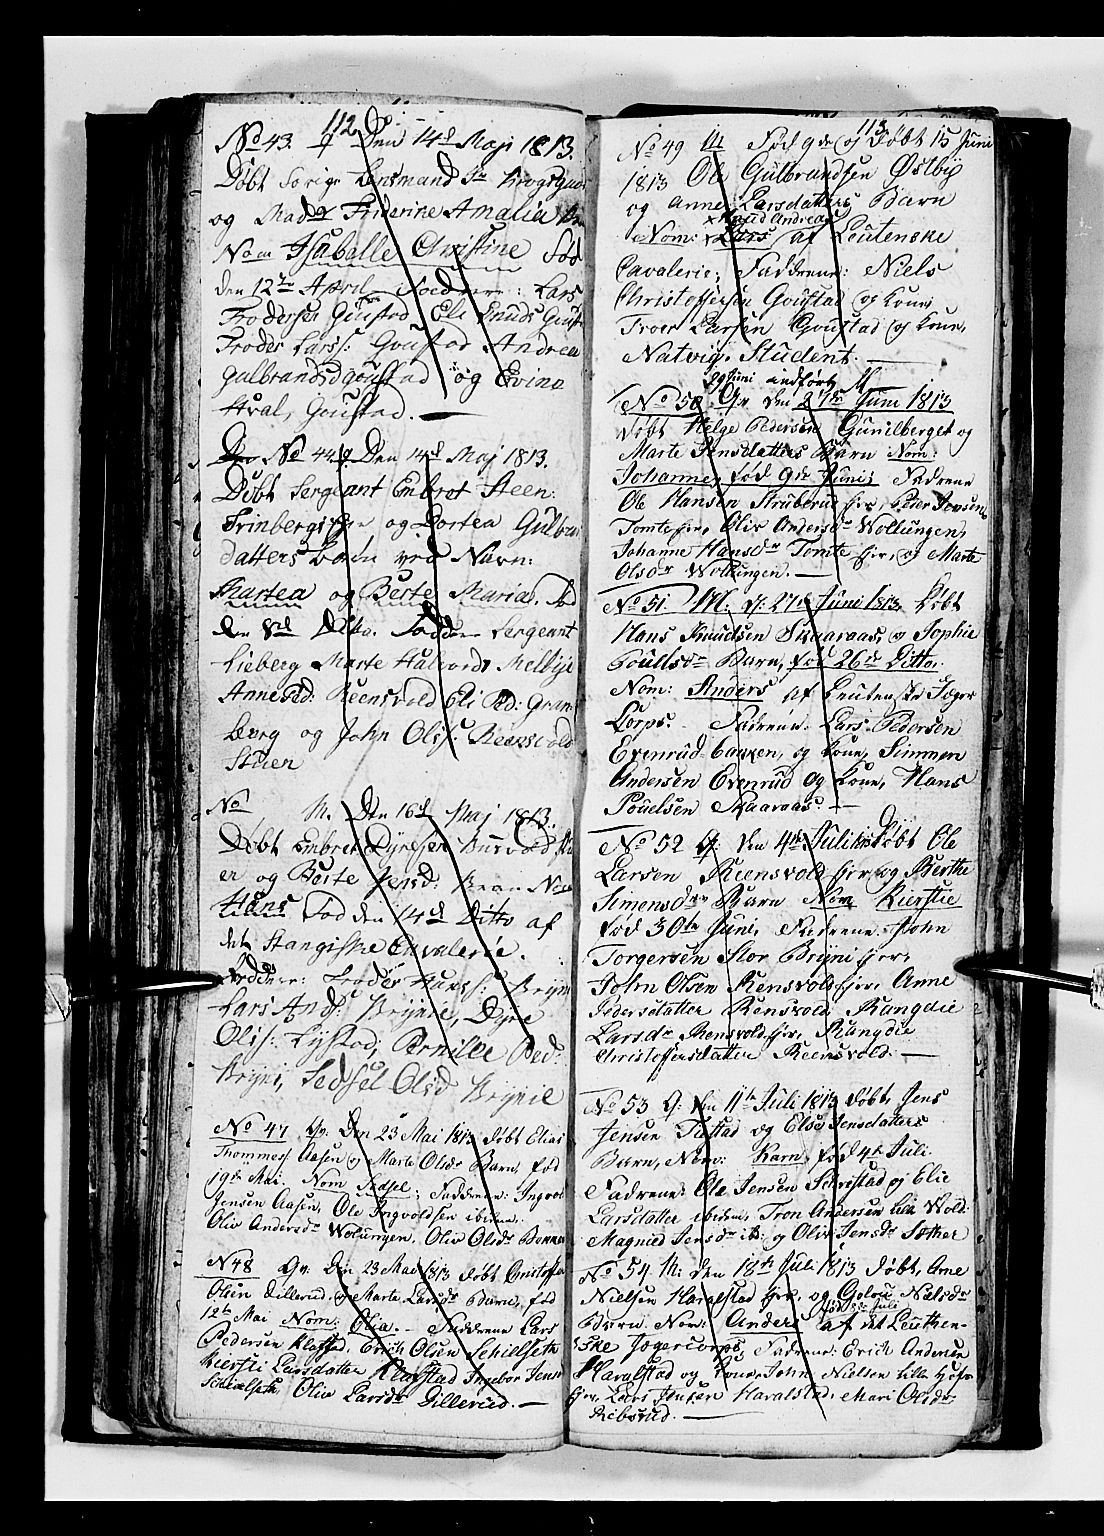 112
No 43. Q Den 14de Maji 1813.
Døbt Lensmand Sr Krogsgaar
og Mad Friderine Amalia
Nom Isabelle Christine fød
den 12te April. Faddere: Lars
Frodersen Goustad Eli Knuds Goust
Froder Larss: Goustad Andrea
Gulbrandsd Goustad og Evina
Hval, Goustad.
No 44. Q Den 14de Maj 1813.
Døbt Sergeant Embret Steen
og Dortea Gulbran
datters ved Navn:
Martea og Berte Maria. fød
den 8de Ditto. Faddere Sergeant
Lieberg Marte Halvords Melbye
Anne Ped: Reensvold Eli Ped: Gran
berg og John Olss: Reensvold
Stuen
No M. Den 16de Maj 1813.
Døbt Embret Dyresen
er og Børte Pensd: Barn Nom
Hans Fød den 14de Ditto af
det Stangiske Cavalerie.
Faddere: Froder Hanss: Bryni
Lars Ands: Brynie, Dyre
Olss: Lystad, Pernille Ped:
Bryni, Sedsel Olsd Brynie
No 47 Qv. Den 23 Mai 1813 døbt Elias
Thommes: Aasen og Marte Olsdr Barn, fød
19de Mai. Nom Sidsel; Faddrene: Ingvol
Jensen Aasen, Ole Ingvoldsen ibidem.
Oliv Andersdr Wolungen. Oliv Olsdr
N 48 Qv: Den 23 Mai 1813 døbt Christoffer
Olsen Dillerud, og Marte Larsdr Barn, fød
12te Mai Nom: Olia. Faddrene Lars
Pedersen Klafstad. Erick Olsen Schielseth
Kiersti Larsdatter Klafstad Ingebor Jens
Schielseth, Oliv Larsdr Dillerud.
113
No 49 M Fød 9de og Døbt 15 Juni
1813 Ole Gulbrandsen Østbye
og Anne Larsdatters Barn
x Knud Andreas
Nom: Lars af Leutenske
Cavalerie; Faddrene: Niels
Christoffersen Goustad og Kone,
Troer Larsen Goustad og Kone,
Natvig, Student.
29 Juni indført M
No 50 Qv den 27de Juni 1813
døbt Helge Pedersen Gunilberget og
Marte Jensdatters Barn Nom:
Johanne, fød 9de Juni; Fadrene
Ole Hansen Struberud Eier, Peter Jonsen
Tomte Eier, Oliv Andersdr Wollungen,
Johanne Hansdr Tomte Eier, og Marte
Olsdr Wollungen.
No 51. M: d: 27de Juni 1813, døbt
Hans Knudsen Skaaraas, og Sophie
Poulsdr Barn, fød 26de Ditto.
Nom: Anders af Leutenske Jæger
Corps. Fadrene: Lars Pedersen
Evenrud-bakken, og Kone, Simmen
Andersen Evenrud og Kone, Hans
Pouelsen Skaaraas.
No 52 Q: den 4de Juli døbt Ole
Larsen Reensvold Eier, og Berthe
Simensdr Barn Nom Kierstie
fød 30te Juni, Fadrene. John
Torgersen Stor Bryni Eier,
John Olsen Rensvold Eier, Anne
Pedersdatter Rensvold Rangdie
Larsdr Rensvold Eier, Rangdie
Christoffersdatter Reensvold.
No 53 Q: den 11te Juli 1813 døbt Jens
Jensen Tustad og Else Jensdatters
Barn, Nom: Karn, fød 4de Juli.
Fadrene: Ole Jensen Schristad og Elie
Larsdatter ibidem, Tron Andersen lille Wold
Magnild Jensdr ib: og Oliv Jensdr Sæther
No 54. M: den 18de Juli 1813 døbt, Arne
Nielsen Haralstad Eier, og Golou Nielsdr
Barn Nom: Anders af det Leuthen-
ske Jægercorps, Fadrene: Erick Andersen
Haralstad og Kone, John Nielsen lille Hof
Eier, Lars Jensen Haralstad, Mari Olsdr
Rebsrud.